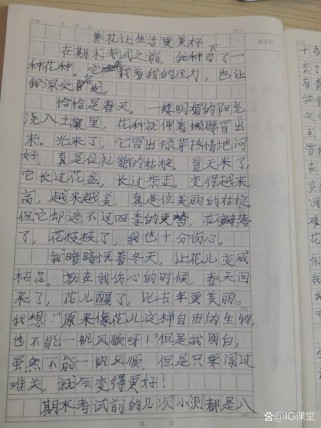 养花让生活更美好
在期末考试之前,我种下了一
种花种。它承载着我的压力,也让
我深受
恰恰是春天。一缕明媚的阳光
浇入土壤里,花种就伸着懒腰冒出
来。光来了,它冒出绿芽热情地问
好,真是位礼貌的姑娘。夏天来了,
它长过花盆,长过
高,越来越美,真是位美丽的姑娘
但它却逃不过四季的更替,花瓣落
了,花枝枝了,我也十分伤心。
我暗暗恨着冬天,让花儿变成
枯花。就在我伤心的时候,春天回
来了,花儿醒了,比去年更美丽。
我想:"原来像花儿这样自由的生物
也不能一帆风顺呀!"但是我明白,
虽然不能一帆风顺,但是只要闯过
难关,就会变得更好!
期末考试前的几次小测都是八
百度@IG课堂